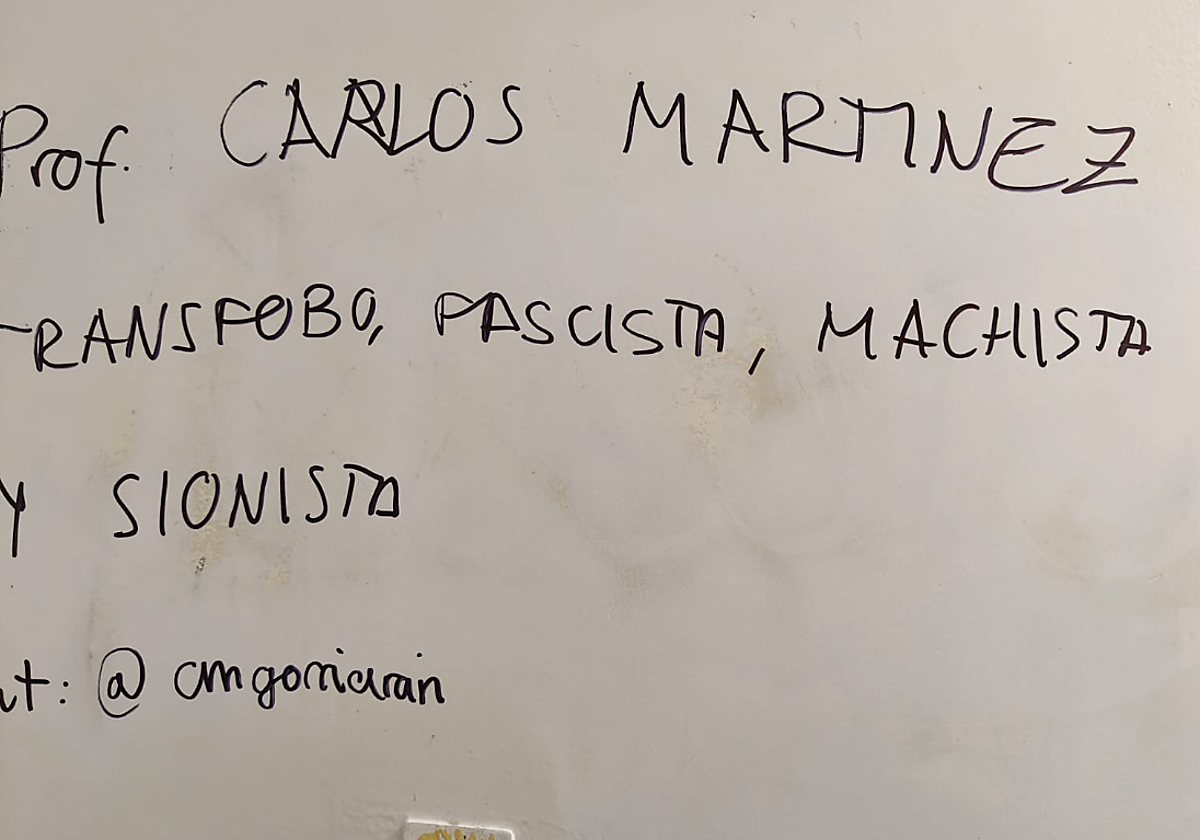 Prof. CARLOS MARTINEZ
TRANSFOBO, FASCISTA, MACHISTA
Y SIONISTA
ut: @cmgorriaran